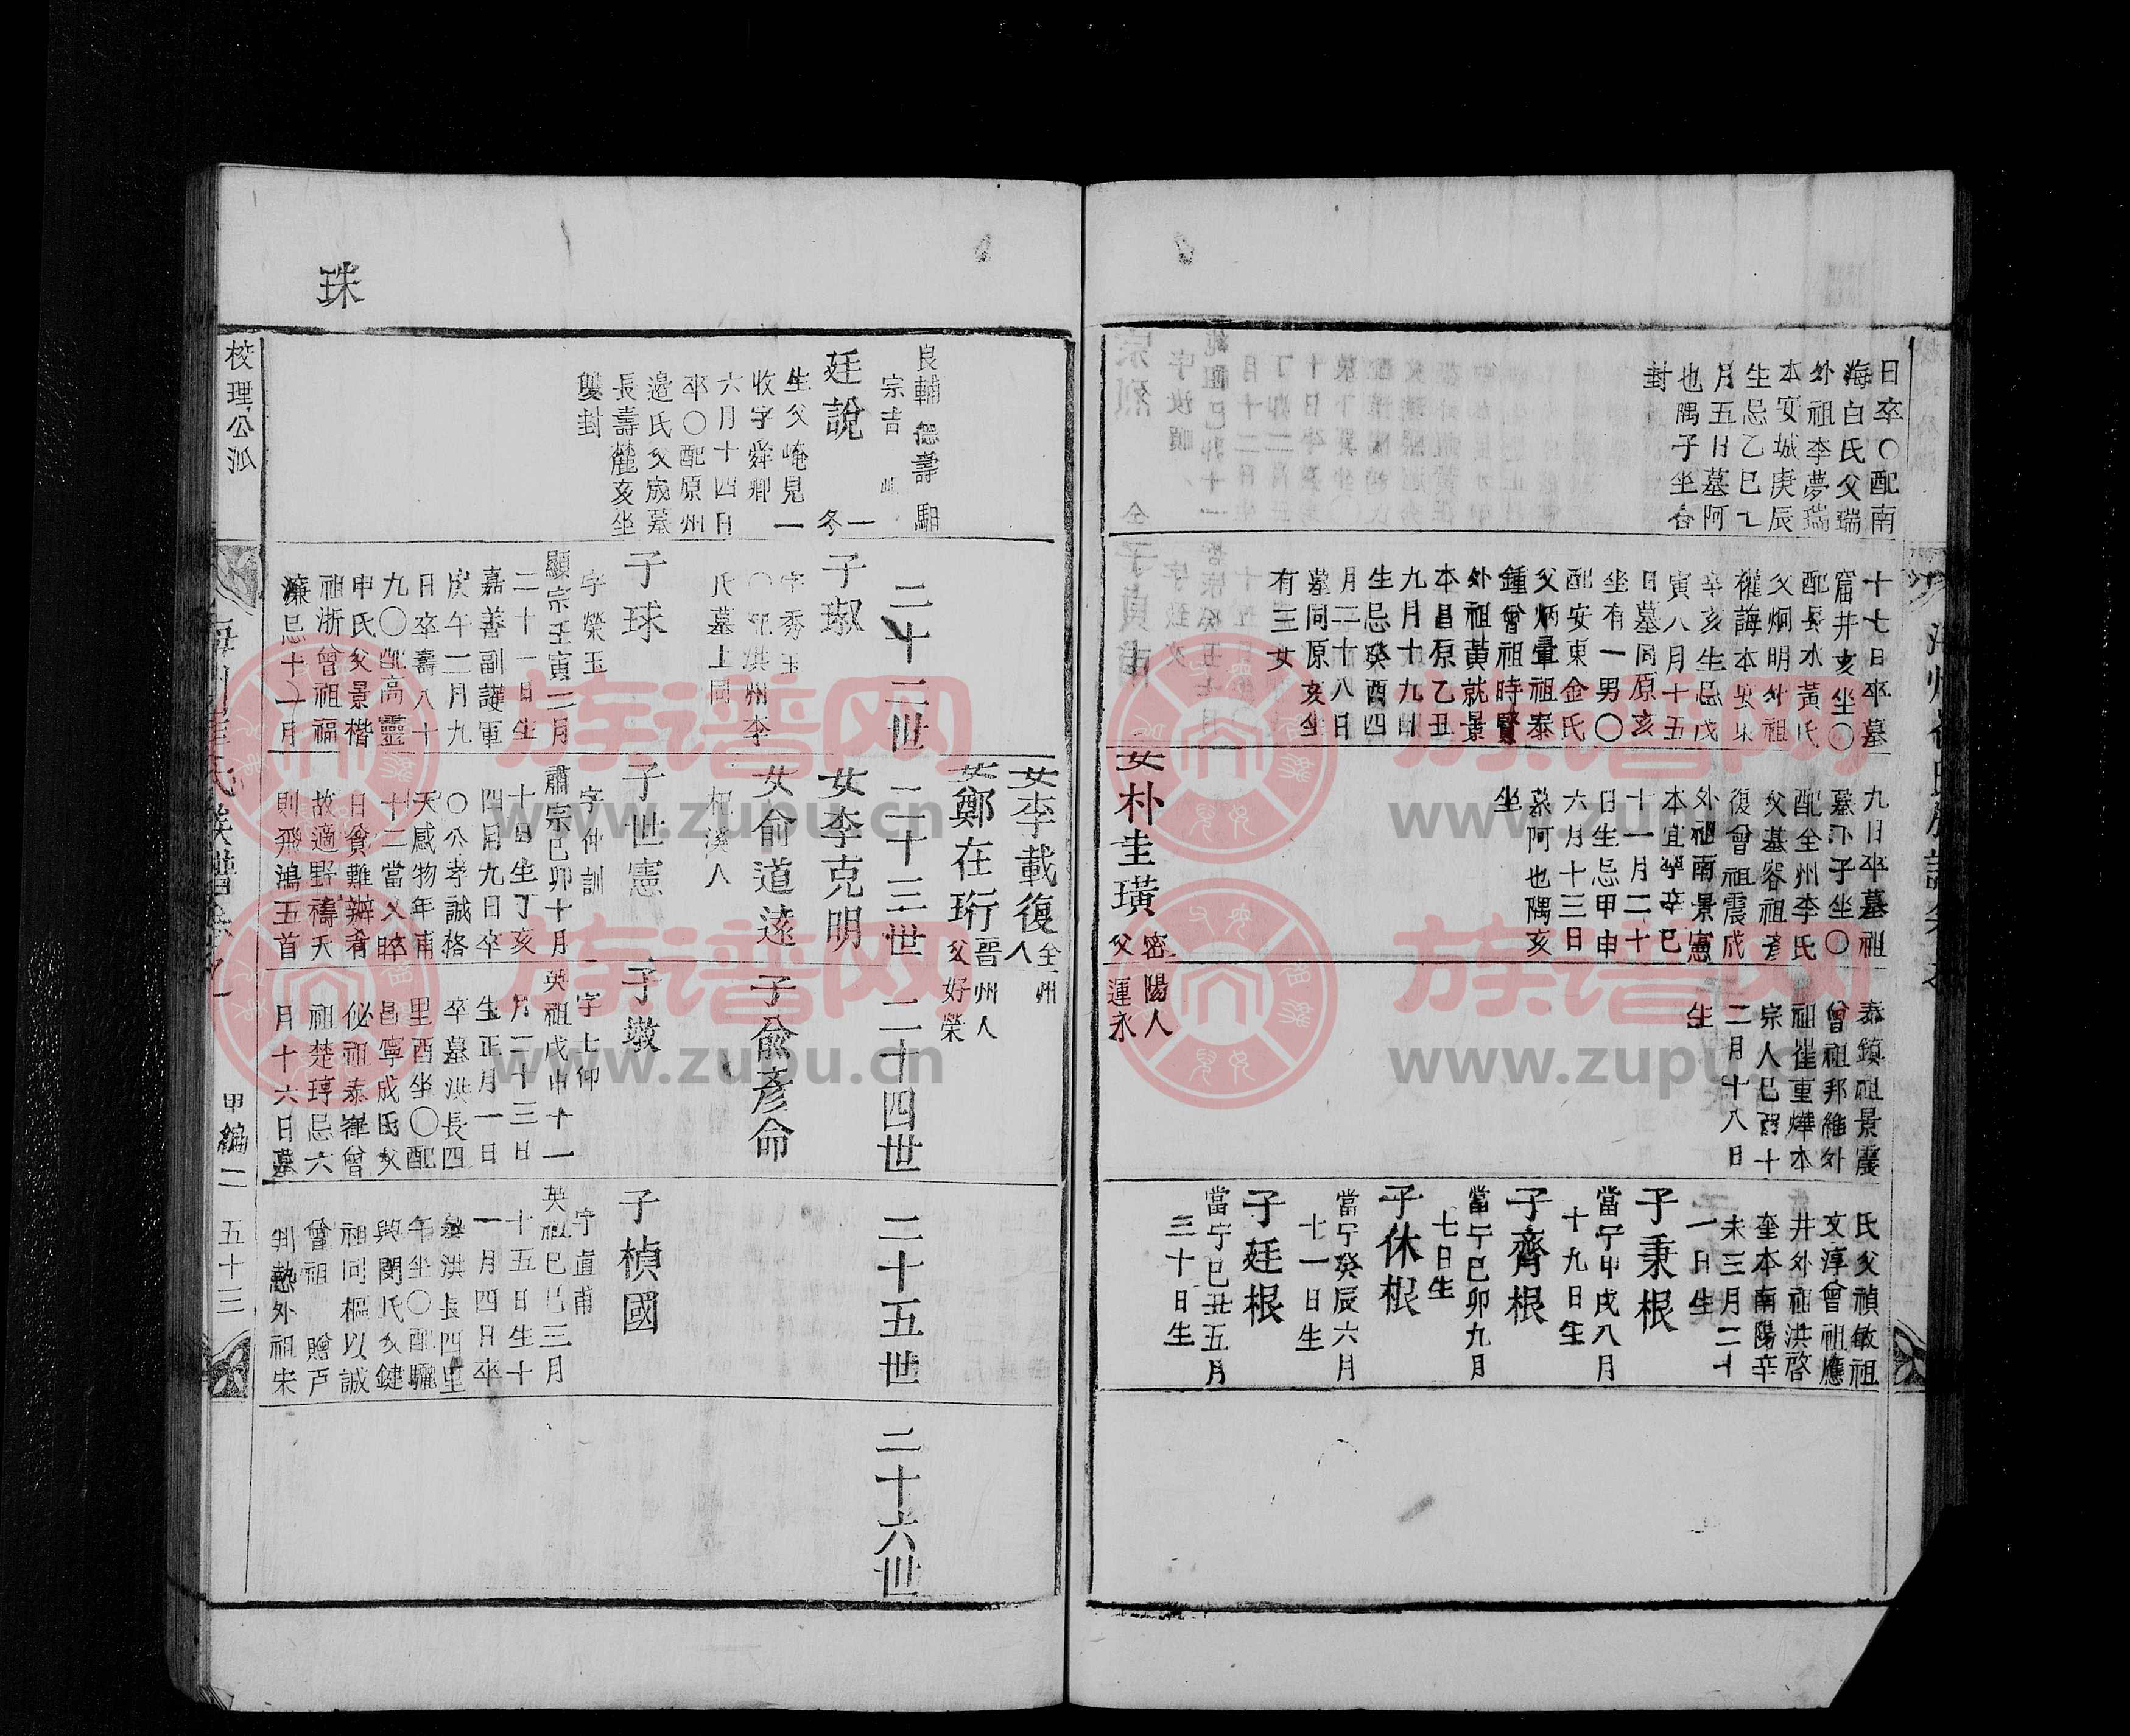 日卒〇配南
海白氏父瑞
外祖李夢瑞
本安城庚辰
生忌乙巳七
月五日墓阿
也隅子坐合
封
十七日卒墓
窟井亥坐〇
配長水黃氏
父炯明外祖
權誨本安東
辛亥生忌戊
寅八月十五
日墓同原亥
坐有一男〇
配安東金氏
父炳暈祖泰
鍾曾祖時賢
外祖黃就景
本昌原乙丑
九月十九日
生忌癸酉四
月二十八日
墓同原亥坐
有三女
九日卒墓祖
墓下子坐〇
配全州李氏
父基容祖彥
復曾祖震成
外祖南景憲
本宜寧辛巳
十一月二十
日生忌甲申
六月十三日
墓阿也隅亥
坐
女朴圭璜 密陽人
父運永
泰鎮祖景靂
曾祖邦維外
祖崔重燁本
宗人己酉十
二月十八日
生
氏父禎敏祖
文淳曾祖應
井外祖洪啓
奎本南陽辛
未三月二十
一日生
子秉根
當宁甲戌八月
十九日生
子齊根
當宁己卯九月
七日生
子休根
當宁癸辰六月
十一日生
子廷根
當宁己丑五月
三十日生
珠
良輔 德壽 馹
宗吉
廷說
生父崦見一
收字舜卿
六月十四日
卒〇配原州
邉氏父宬墓
長壽麓亥坐
雙封
二十二世
二十三世
二十四世
二十五世
二十六世
子琡
字秀玉
〇配洪州李
氏墓上同
子球
字榮玉
顯宗壬寅二月
二十一日生
嘉善副護軍
庚午二月九
日卒壽八十
九〇配高靈
申氏父景楷
祖浙曾祖福
濂忌十一月
女李載復 全州
人
女鄭在珩 晋州人
父好榮
女李克明
女俞道遠
杞溪人
子世憲
字仲訓
肅宗己卯十月
十日生丁亥
四月九日卒
〇公孝誠格
天感物年甫
十二當父晬
日貧難辦肴
故適野禱天
則飛鴻五首
子俞彥命
子墩
字士仰
英祖戊申十一
月二十三日
生正月一日
卒墓洪長四
里酉坐〇配
昌寧成氏父
佖祖泰崔曾
祖楚琸忌六
月十六日墓
子楨國
字直甫
英祖己巳三月
十五日生十
一月四日卒
墓洪長四里
午坐〇配驪
與閔氏父鍵
祖同樞以誠
曾祖 贈戶
判懃外祖宋
校理公派
甲編二 五十三
族谱网
www.zupu.cn
族谱网
www.zupu.cn
族谱网
www.zupu.cn
族谱网
www.zupu.cn